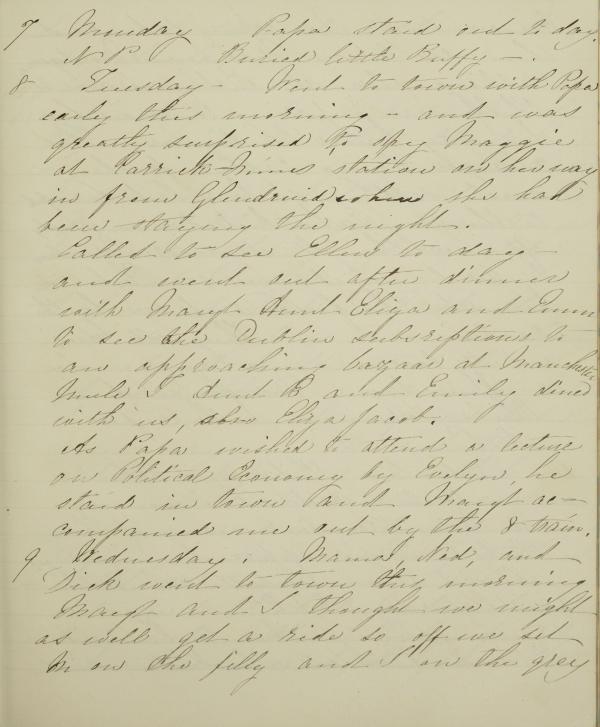 7 Monday Papa staid out to day.
N P Buried little Buffy —.
8 Tuesday — Went to town with Papa
early this morning — and was
greatly surprised to spy Maggie
at Carrick-mines station on her way
in from Glendruid where she had
been staying the night.
Called to see Ellen to day —
and went out after dinner
with Margt Aunt Eliza and Emm
to see the Dublin subscriptions to
an approaching bazaar at Manchester
Uncle J Aunt B and Emily dined
with us, also Eliza Jacob.
As Papa wished to attend a lecture
on Political Economy by Evelyn, he
staid in town and Margt ac-
companied me out by the 8 train.
9 Wednesday. Mama, Ned, and
Dick went to town this morning
Margt and I thought we might
as well get a ride so off we set
M on the filly and I on the grey